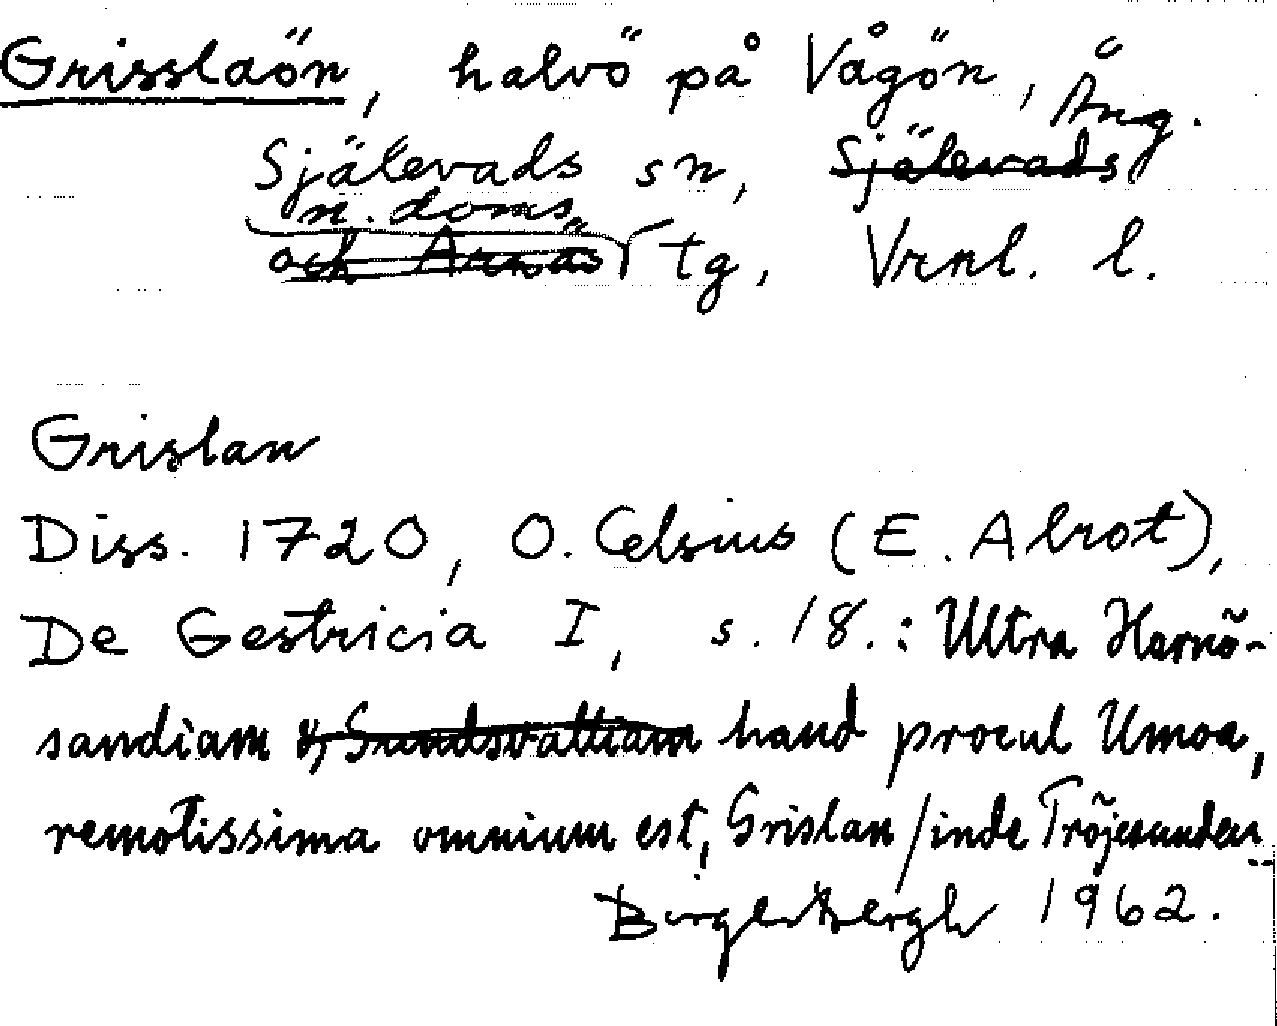 Grisslaön, halvö på Vågön, Ång.
Själevads sn, Själevads
n. doms
och Arnäs tg, Vrnl. l.
Grislan
Diss. 1720, O. Celsius (E. Alrot),
De Gestricia I, s. 18.: Ultra Hornõ-
sandiam & Sundsvalliam haud procul Umoa,
remotissima omnium est, Grislan / inde Trõjesunden
Birger Bergh 1962.